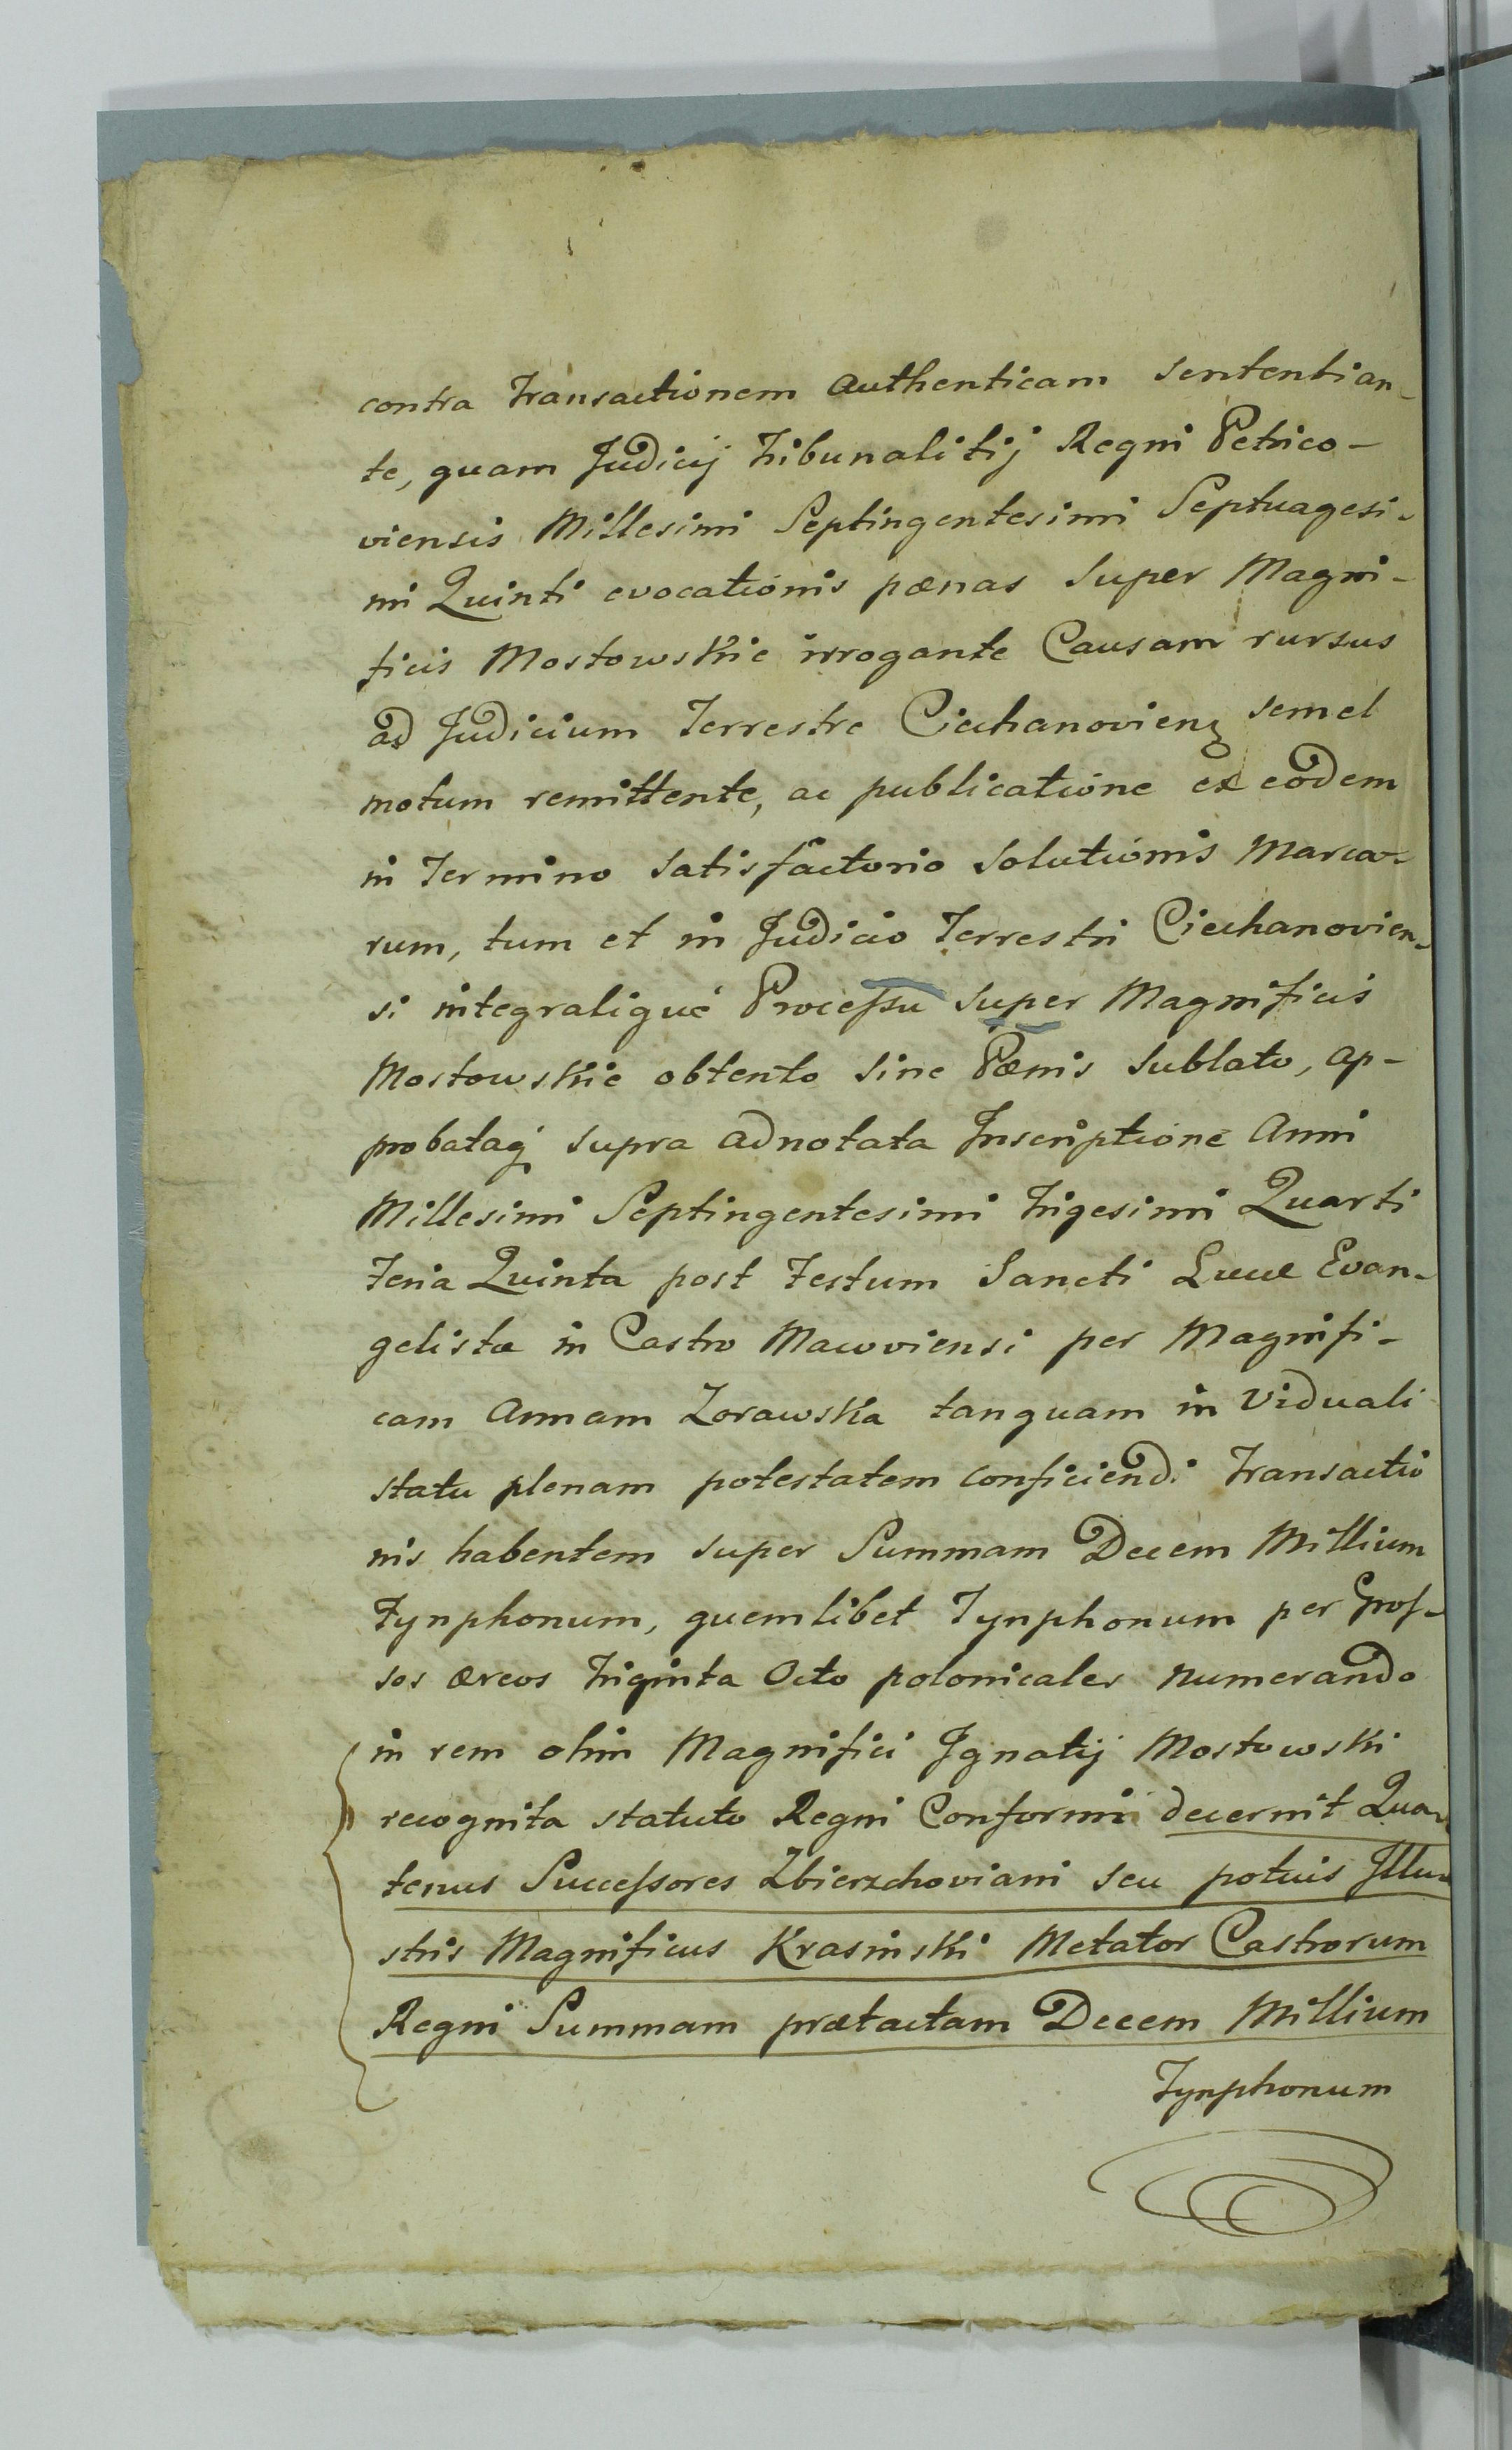 contra Transactionem Authenticam Sententian-
te, quam Judicij Tribunalitij Regni Petrico-
viensis Millesimi Septingentesimi Septuagesi-
mi Quinti evocationis pænas super Magni-
ficis Mostowskie irrogante Causam rursus
ad Judicium Terrestre Ciechanovienȝ semel
motum remittente, ac publicatione ex eodem
in Termino satisfactorio solutionis Marca-
rum, tum et in Judicio Terrestri Ciechanovien-
si integralique Processu super Magnificis
Mostowskie obtento sine Pænis sublato, ap-
probataq supra adnotata Inscriptione Anni
Millesimi Septingentesimi Trigesimi Quarti
Feria Quinta post Festum Sancti Lucæ Evan-
gelistæ in Castro Macoviensi per Magnifi-
cam Annam Zorawska tanquam in Viduali
statu plenam potestatem conficiendi Transactio
nis habentem super Summam Decem Millium
Tynphonum, quemlibet Tynphonum per Gros-
sos æreos Triginta Octo polonicales numerando
in rem olim Magnifici Ignatij Mostowski
recognita statuto Regni Conformi decernit Qua-
tenus Successores Zbierzchoviani seu potius Illu-
stris Magnificus Krasinski Metator Castrorum
Regni Summam prætactam Decem Millium
Tynphonum